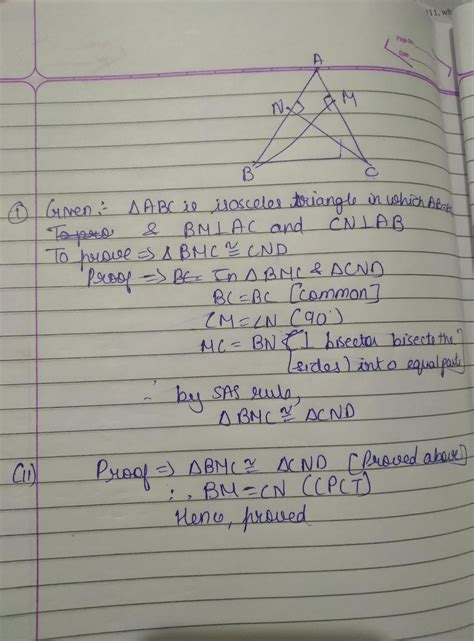 Page No.
Date
A
N
M
B
C
(i) Given :- ΔABC is isosceles triangle in which AB=AC
To pro & BM⊥AC and CN⊥AB
To prove ⇒ ΔBMC ≅ CND
Proof ⇒ BC= In ΔBMC & ΔCND
BC=BC [Common]
∠M=∠N (90°)
MC = BN { ⊥ bisector bisects the
sides) into equal parts
∴ by SAS rule,
ΔBMC ≅ ΔCND
(ii) Proof ⇒ ΔBMC ≅ ΔCND [Proved above]
∴, BM=CN (CPCT)
Hence, proved